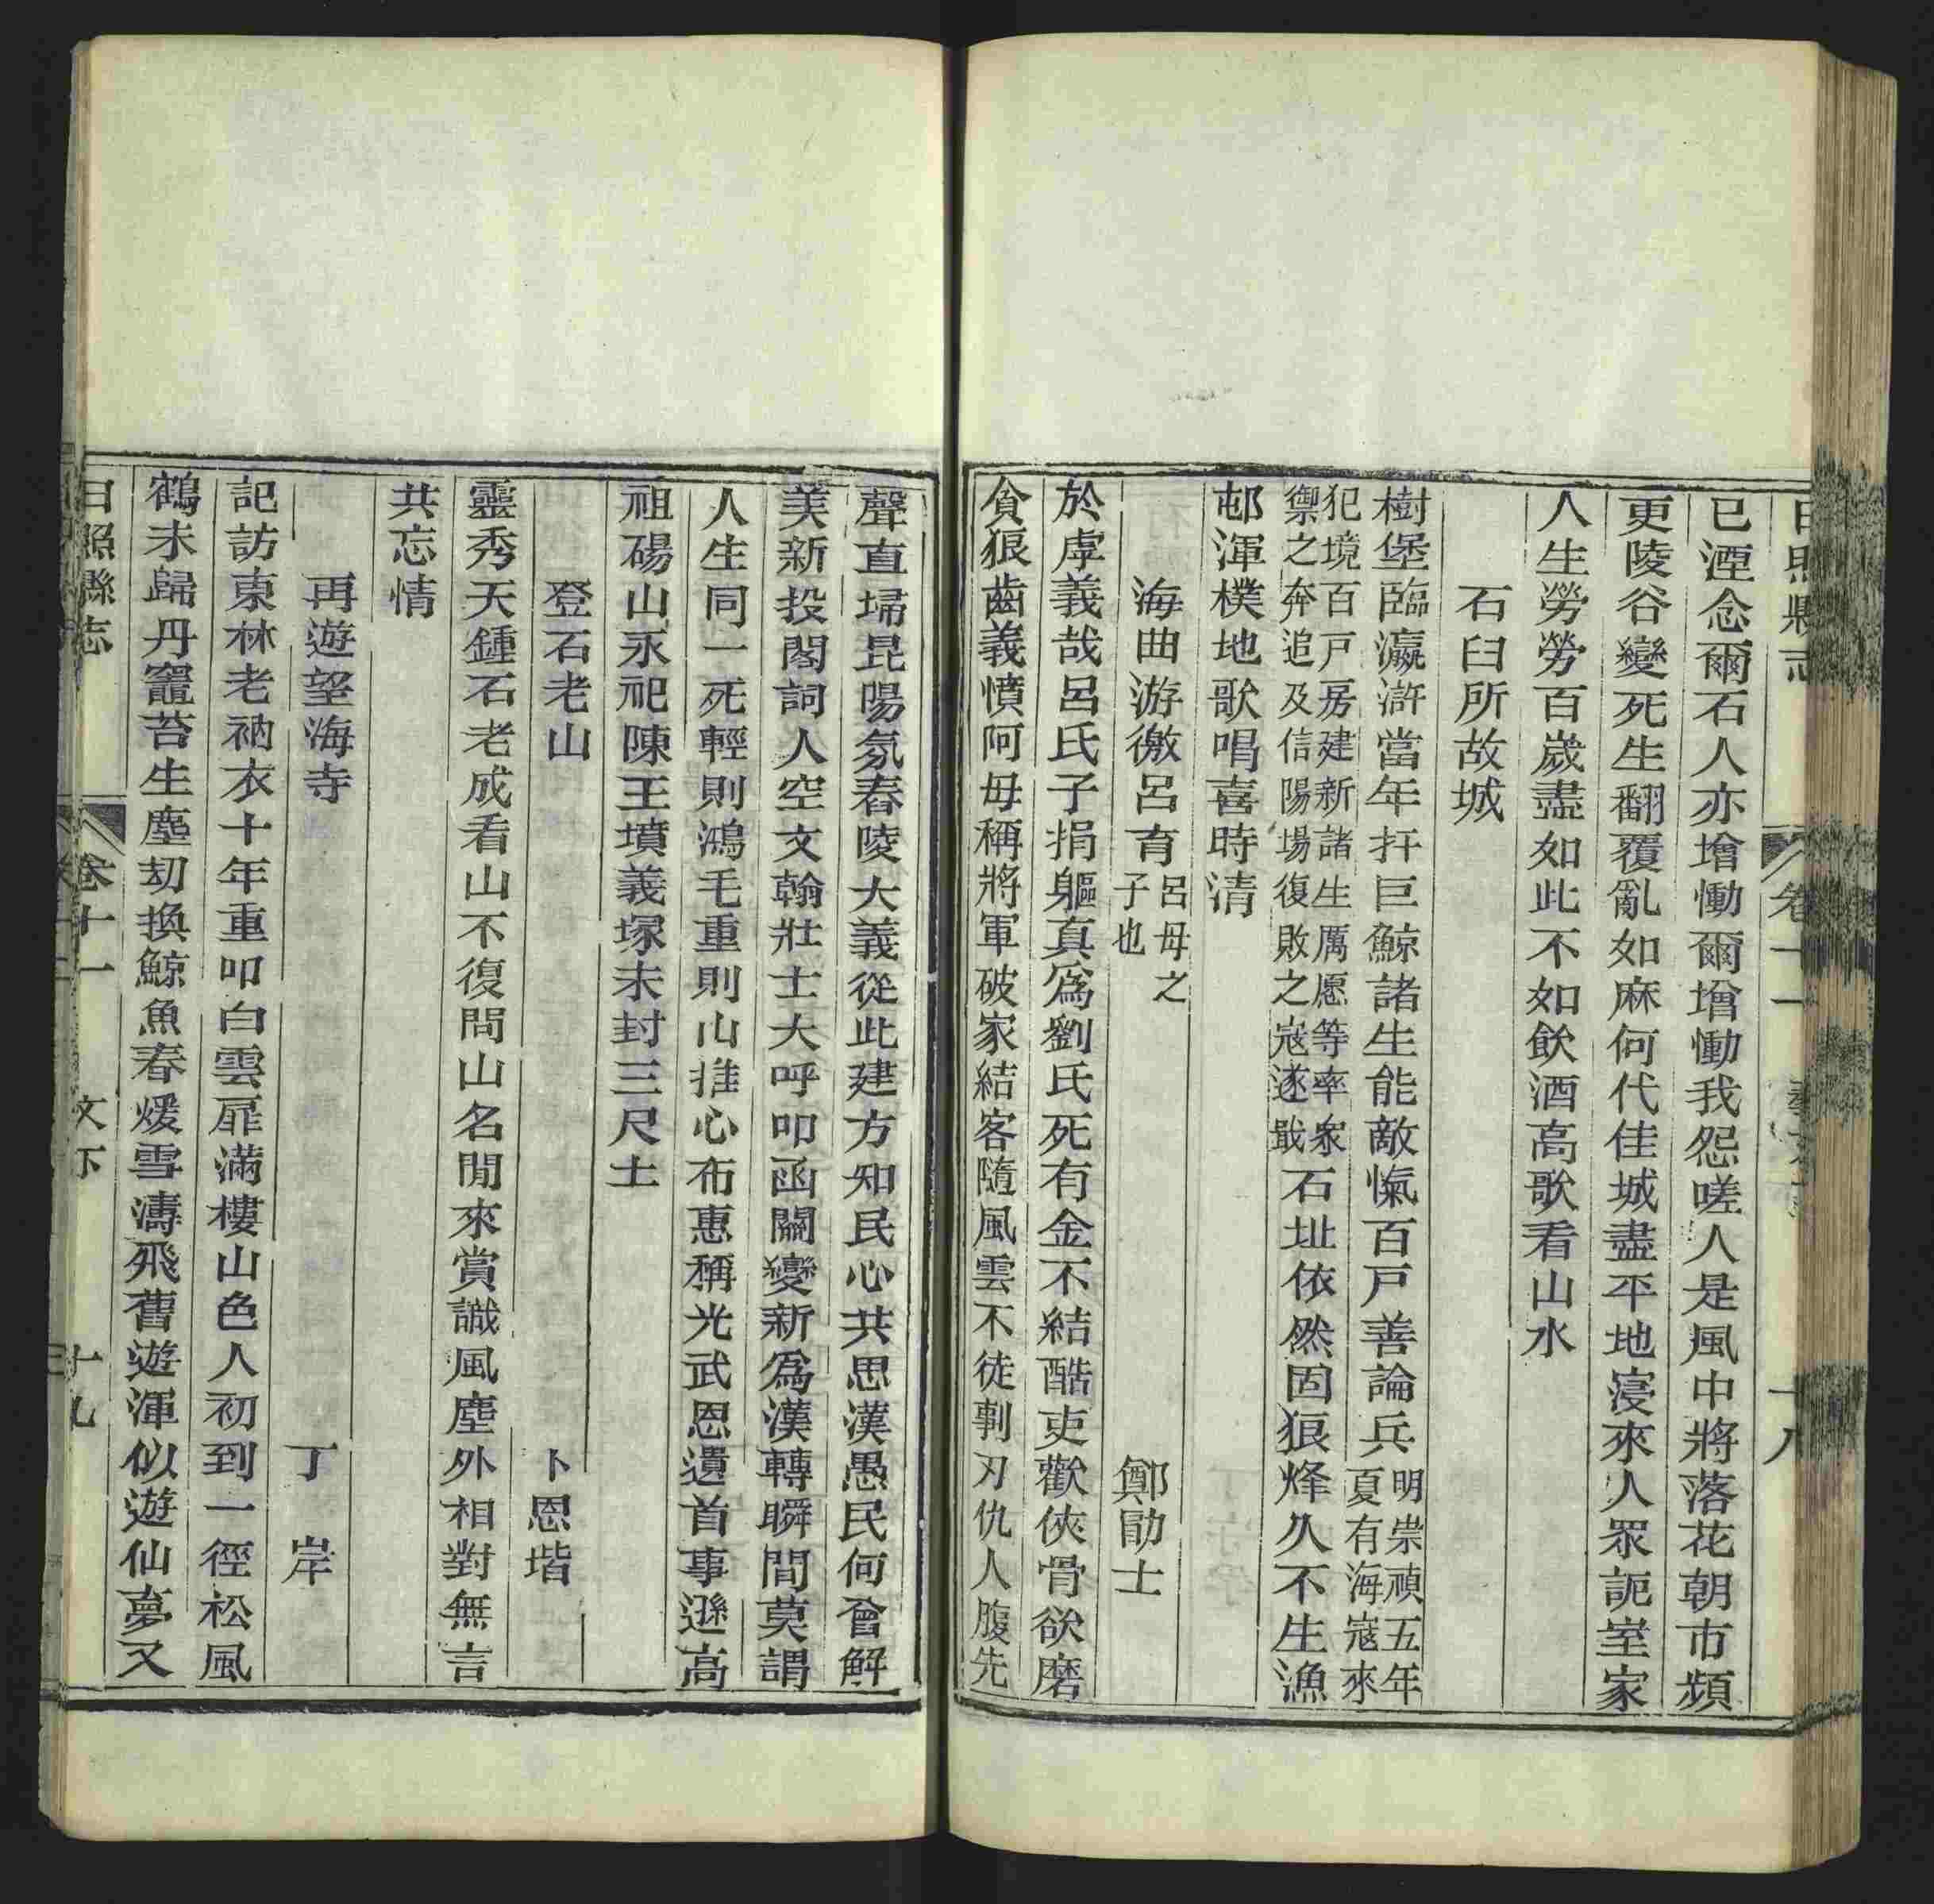 日照縣志
卷十一
十八
已湮念爾石人亦增慟爾增慟我怨嗟人是風中將落花朝市頻
更陵谷變死生翻覆亂如麻何代佳城盡平地寖來人眾詑室家
人生勞勞百歲盡如此不如飲酒高歌看山水
石臼所故城
樹堡臨瀛滸當年扞巨鯨諸生能敵愾百戸善論兵明崇禎五年
夏有海寇來
犯境百戸房建新諸生厲愿等率衆
禦之奔追及信陽場復敗之寇遂戢石址依然固狼烽久不生漁
邨渾樸地歌唱喜時清
海曲游徼呂育呂母之
子也
鄭勖士
於虖義哉呂氏子捐軀真爲劉氏死有金不結酷吏歡俠骨欲磨
貪狼齒義憤阿母稱將軍破家結客隨風雲不徒剚刃仇人腹先
聲直埽昆陽氛舂陵大義從此建方知民心共思漢愚民何曾解
美新投閣詞人空文翰壯士大呼叩函關變新爲漢轉瞬間莫謂
人生同一死輕則鴻毛重則山推心布惠稱光武恩遺首事遜高
祖碭山永祀陳王墳義塚未封三尺土
登石老山
卜恩堦
靈秀天鍾石老成看山不復問山名閒來賞識風塵外相對無言
共忘情
再遊望海寺
丁岸
記訪東林老衲衣十年重叩白雲扉滿樓山色人初到一徑松風
鶴未歸丹竈苔生塵刼換鯨魚春煖雪濤飛舊遊渾似遊仙夢又
日照縣志
卷十一
文下
十九